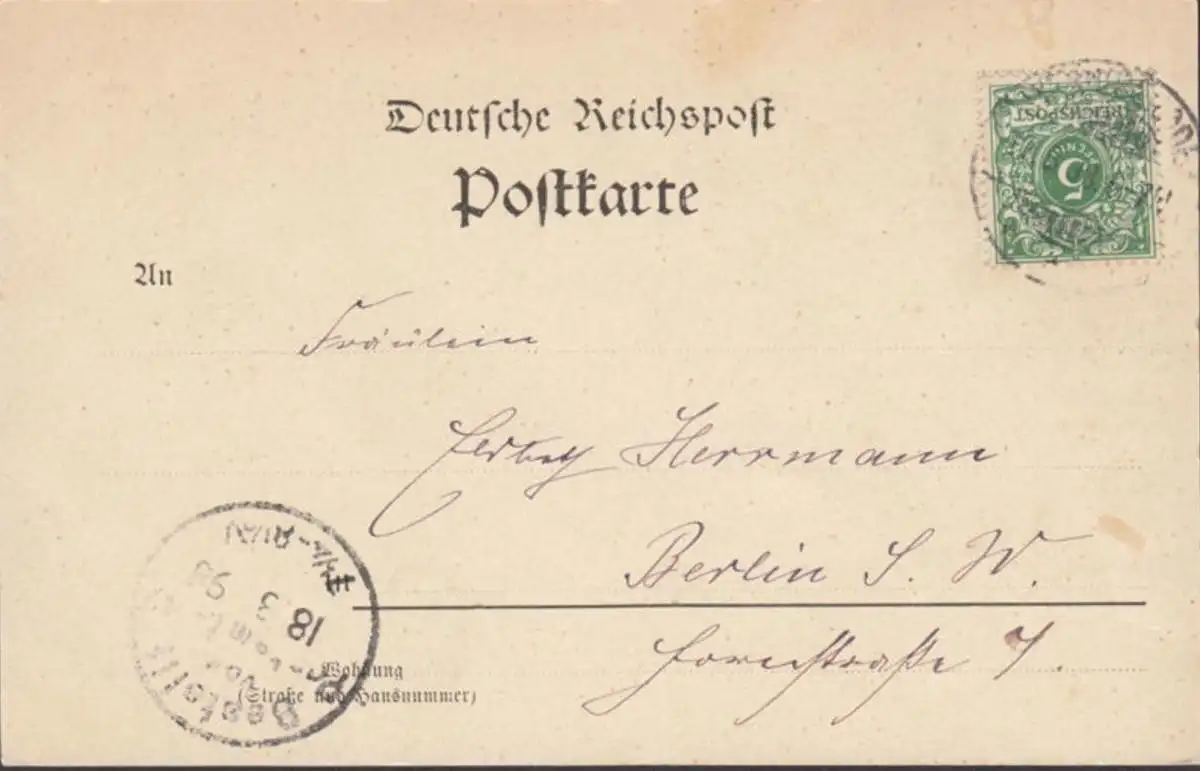 Deutsche Reichspost
Postkarte
REICHSPOST
5
PFENNIG
An
Fräulein
Herrmann
Berlin S. W.
Hornstraße 7.
Wohnung
(Straße und Hausnummer)
Bestellt
vom
Postamte
18 3 98